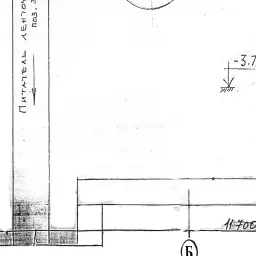 Питатель ленточ
поз.
-3.7
11700
Б